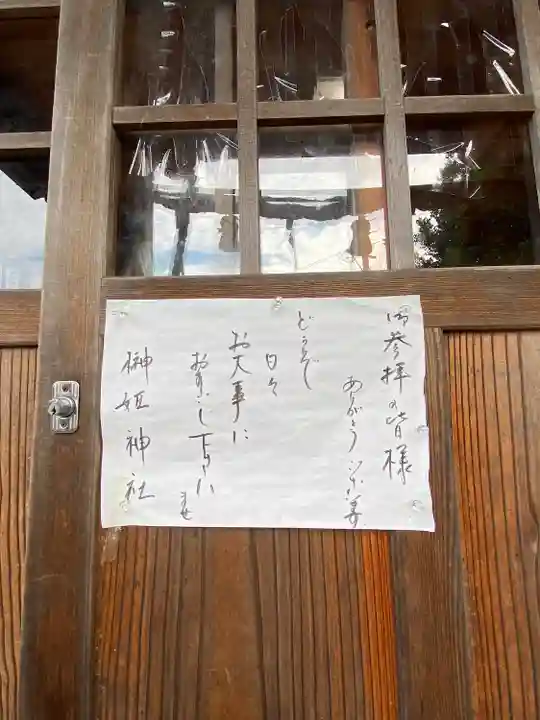 御参拝の皆様
ありがとうございます
どうぞ
日々
お大事に
おすごし下さい
ませ
榊姫神社